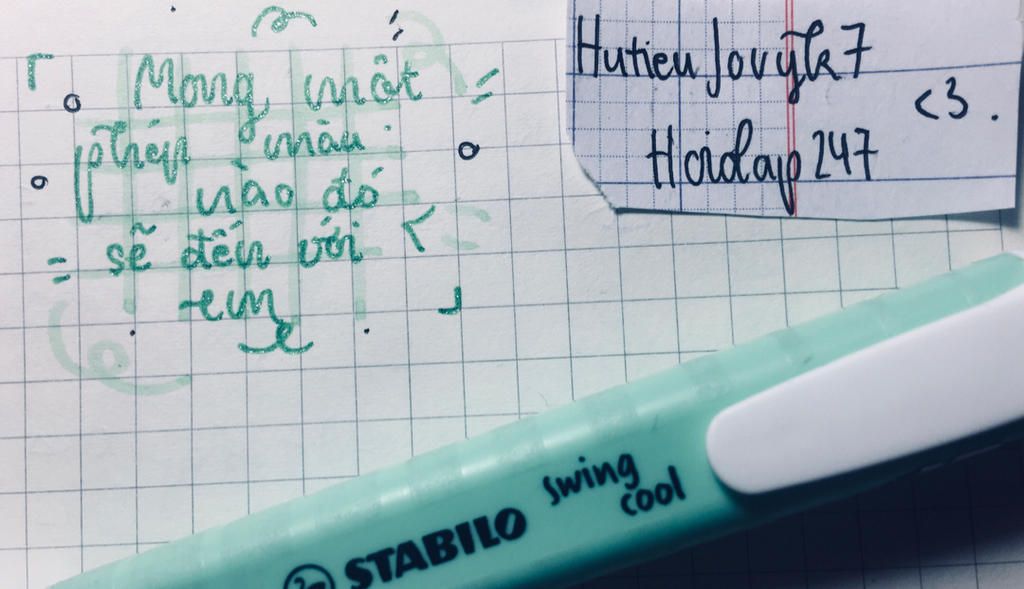 Mong một
phép màu
nào đó
sẽ đến với
em
HutieuJovyTk7
<3.
Hoidap247
swing
cool
STABILO